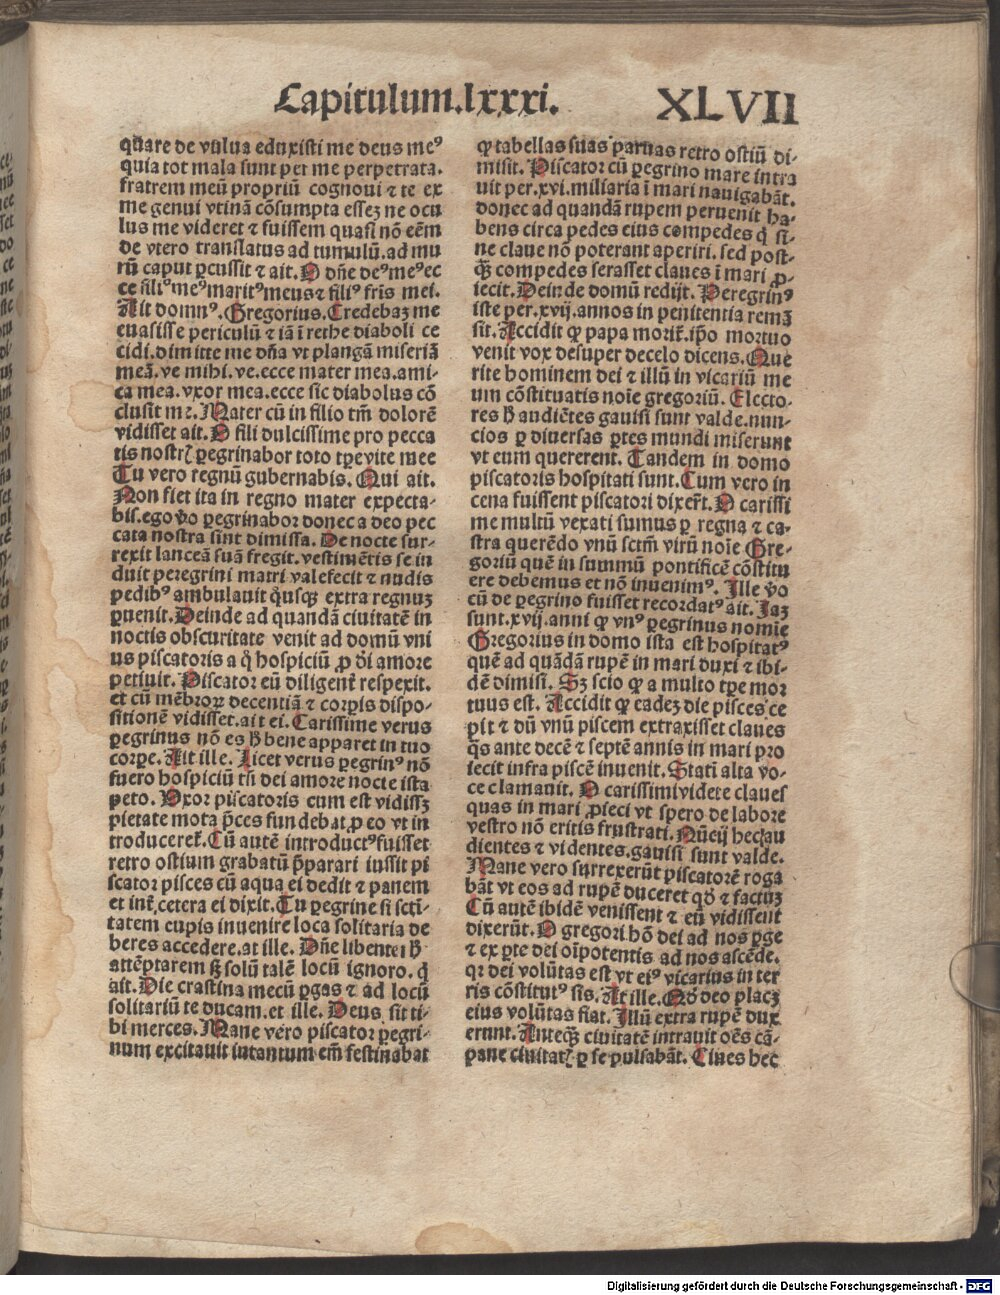 Capitulum.lxxxi. XLVII
quare de vulua eduxisti me deus meꝰ
quia tot mala sunt per me perpetrata.
fratrem meū propriū cognoui ⁊ te ex
me genui vtinā cōsumpta essez ne ocu
lus me videret ⁊ fuissem quasi nō eēm
de vtero translatus ad tumulū. ad mu
rū caput ꝑcussit ⁊ ait. O dn̄e deꝰmeꝰec
ce filiꝰmeꝰmaritꝰmeus⁊ filiꝰ fr̄is mei.
Ait domnꝰ. Gregorius. Credebaz me
euasisse periculū ⁊ iā ī rethe diaboli ce
cidi. dimitte me dn̄a vt plangā miseriā
meā. ve mihi. ve. ecce mater mea. ami-
ca mea. vxor mea. ecce sic diabolus cō
clusit me. Mater cū in filio tm̄ dolorē
vidisset ait. O fili dulcissime pro pecca
tis nostrꝭ ꝑegrinabor toto tꝑe vite mee
Tu vero regnū gubernabis. Qui ait.
Non fiet ita in regno mater expecta-
bis. ego v̄o ꝑegrinabor donec a deo pec
cata nostra sint dimissa. De nocte sur-
rexit lanceā suā fregit. vestimētis se in
duit peregrini matri valefecit ⁊ nudis
pedibꝰ ambulauit q̄usqꝫ extra regnuz
ꝑuenit. Deinde ad quandā ciuitatē in
noctis obscuritate venit ad domū vni
us piscatoris a q̊ hospiciū ꝓ di amore
petiuit. Piscator eū diligent̄ respexit.
et cū mēbroꝝ decentiā ⁊ corꝑis dispo-
sitionē vidisset. ait ei. Carissime verus
ꝑegrinus nō es h̄ bene apparet in tuo
corꝑe. Ait ille. Licet verus ꝑegrinꝰ nō
fuero hospiciū tn̄ dei amore nocte ista
peto. Uxor piscatoris cum est vidissꝫ
pietate mota p̄ces fundebat ꝓ eo vt in
troduceret̄. Cū autē introductꝰfuisset
retro ostium grabatū p̄parari iussit pi
scator pisces cū aqua ei dedit ⁊ panem
et int̄ cetera ei dixit. Tu ꝑegrine si sctī-
tatem cupis inuenire loca solitaria de
beres accedere. at ille. Dn̄e libenter h̄
attēptarem sꝫ solū talē locū ignoro. q̄
ait. Die crastina mecū ꝑgas ⁊ ad locū
solitariū te ducam. et ille. Deus sit ti-
bi merces. Mane vero piscator ꝑegri-
num excitauit intantum em̄ festinabat
ꝙ tabellas suas paruas retro ostiū di-
misit. Piscator cū ꝑegrino mare intra
uit per. xvi. miliaria ī mari nauigabāt.
donec ad quandā rupem peruenit ha-
bens circa pedes eius compedes q̄ si-
ne claue nō poterant aperiri. sed post-
q̄ꝫ compedes serasset claues ī mari ꝓ-
iecit. Deinde domū redijt. Peregrinꝰ
iste per. xvij. annos in penitentia remā
sit. Accidit ꝙ papa morit̄. ip̄o mortuo
venit vox desuper decelo dicens. Que
rite hominem dei ⁊ illū in vicariū me
um cōstituatis noīe gregoriū. Electo-
res h̄ audiētes gauisi sunt valde. nun-
cios ꝑ diuersas ꝑtes mundi miserunt
vt eum quererent. Tandem in domo
piscatoris hospitati sunt. Cum vero in
cena fuissent piscatori dixer̄t. O carissi
me multū vexati sumus ꝑ regna ⁊ ca-
stra querēdo vnū sctm̄ virū noīe Gre-
goriū quē in summū pontificē cōstitu
ere debemus et nō inuenimꝰ. Ille v̄o
cū de ꝑegrino fuisset recordatꝰ ait. Jaz
sunt. xvij. anni ꝙ vnꝰ ꝑegrinus nomīe
Gregorius in domo ista est hospitatꝰ
quē ad quādā rupē in mari duxi ⁊ ibi-
dē dimisi. Sꝫ scio ꝙ a multo tꝑe mor
tuus est. Accidit ꝙ eadeꝫ die pisces ce
pit ⁊ dū vnū piscem extraxisset claues
q̄s ante decē ⁊ septē annis in mari pro
iecit infra piscē inuenit. Statī alta vo-
ce clamauit. O carissimi videte claues
quas in mari ꝓieci vt spero de labore
vestro nō eritis frustrati. Nūcij hec au
dientes ⁊ videntes. gauisi sunt valde.
Mane vero surrexerūt piscatorē roga
bāt vt eos ad rupē duceret qd̄ ⁊ factuꝫ
Cū autē ibidē venissent ⁊ eū vidissent
dixerūt. O gregori. hō dei ad nos ꝑge
⁊ ex ꝑte dei oīpotentis ad nos ascēde.
qꝛ dei volūtas est vt eiꝰ vicarius in ter
ris cōstitutꝰ sis. At ille. Qd̄ deo placꝫ
eius volūtas fiat. Illū extra rupē dux
erunt. Anteqꝫ ciuitatē intrauit oēs cā-
pane ciuitatꝭ ꝑ se pulsabāt. Ciues hec
Digitalisierung gefördert durch die Deutsche Forschungsgemeinschaft - DFG